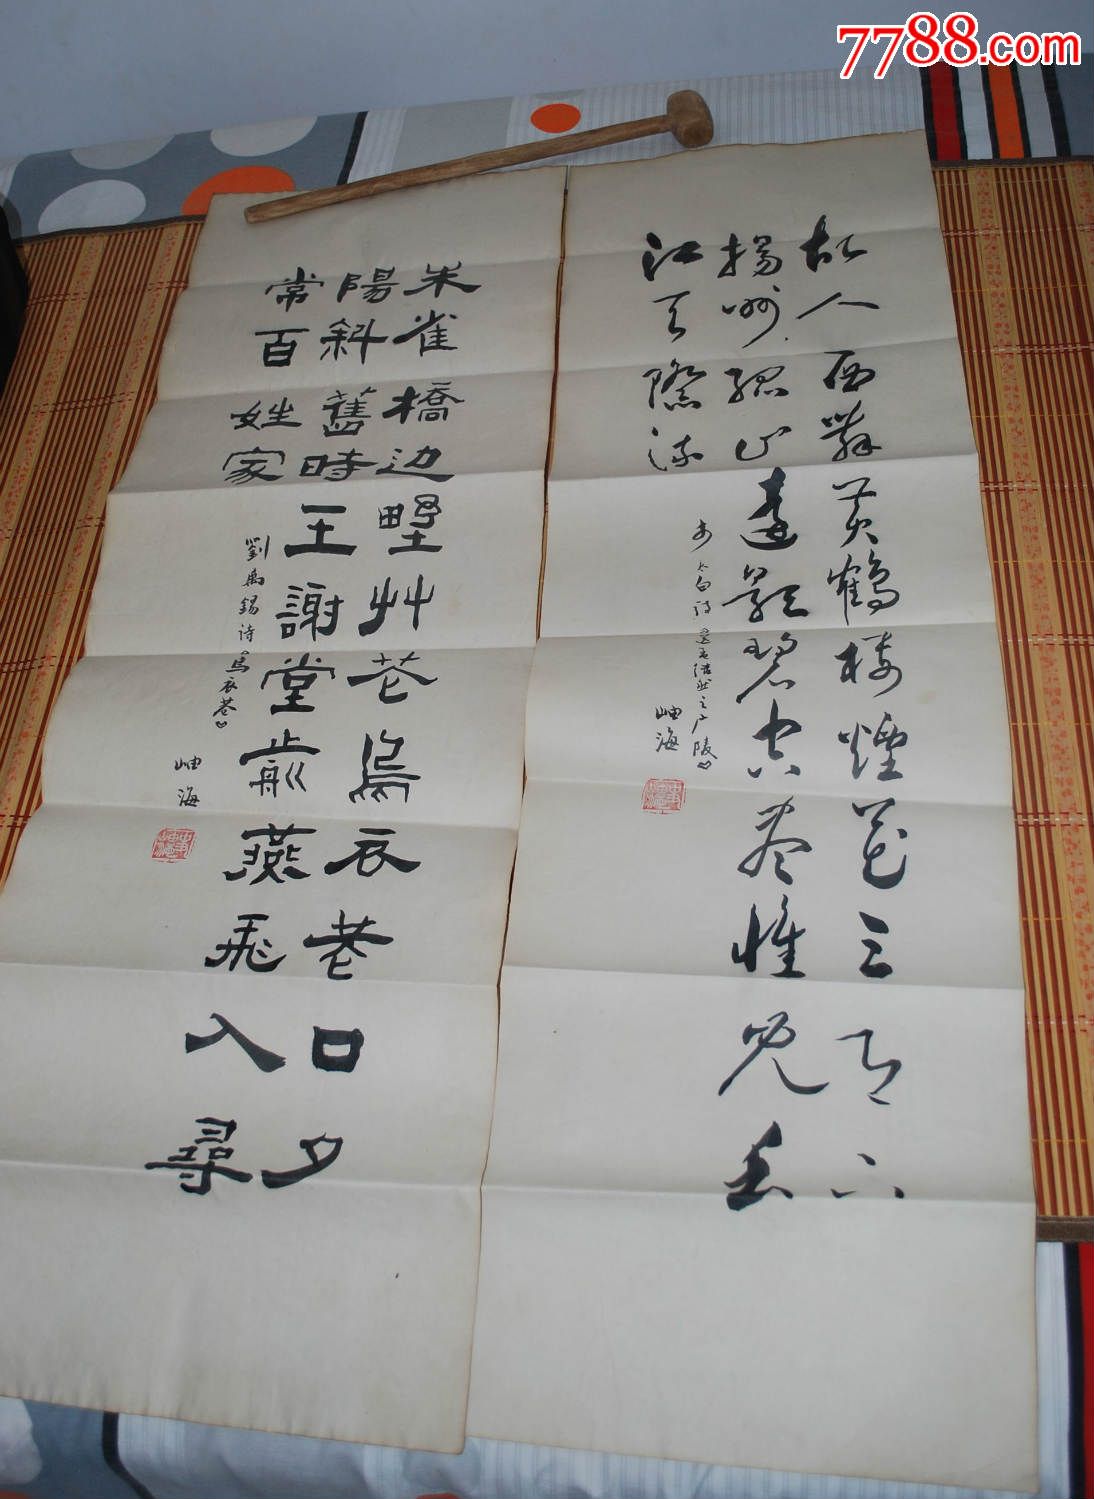 7788.com
故人西辞黄鹤楼煙花三月下
揚州孤帆遠影碧空尽惟見長
江天際流
李太白诗《送孟浩然之广陵》
岫海
朱雀橋边野艸花烏衣巷口夕
陽斜舊時王謝堂前燕飛入尋
常百姓家
劉禹錫诗《烏衣巷》
岫海